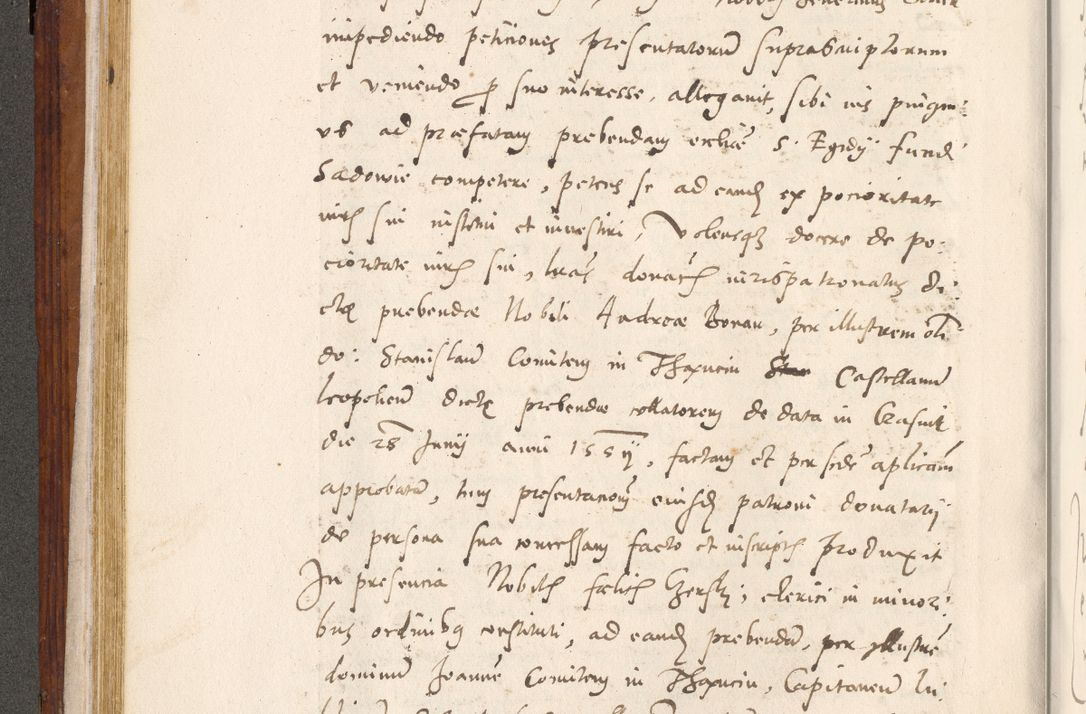 impediendo peticiones presentatorum suprascriptorum
et veniendo p suo interesse, allegavit, sibi ius pingui:
us ad præfatam prebendam ecclie S. Egidÿ fundi
Sadowie competere, petens se ad eand ex pocioritate
iuris sui institui et investiri, Volensqz docere de po:
cioritate iuris sui, lras donacis iurispatronatus di:
cte prebendæ Nobili Andreæ Boran, per illustrem olim
do: Stanislaum Comitem in Thaxncin Castellanum
leopolien dicte prebendæ collatorem de data in
die 28 Junÿ anni 155ÿ, factam et per sede aplicam
approbatam, tum presentacionem eiusd patroni donatarÿ
de persona sua concessam facto et inscriptis produxit
In presencia Nobilis fælicis, clerici in minori:
bus ordinibq constituti, ad eand prebendam, per illustre
dominum Joannem Comitem in Thaxncin, Capitaneum lu